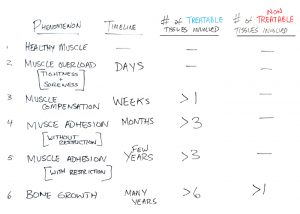 PHENOMENON TIMELINE # OF TREATABLE TISSUES INVOLVED # OF NON TREATABLE TISSUES INVOLVED
1 HEALTHY MUSCLE — — —
2 MUSCLE OVERLOAD DAYS — —
[TIGHTNESS + SORENESS]
3 MUSCLE COMPENSATION WEEKS >1 —
4 MUSCLE ADHESION MONTHS >3 —
[WITHOUT RESTRICTION]
5 MUSCLE ADHESION FEW YEARS >3 —
[WITH RESTRICTION]
6 BONE GROWTH MANY YEARS >6 >1